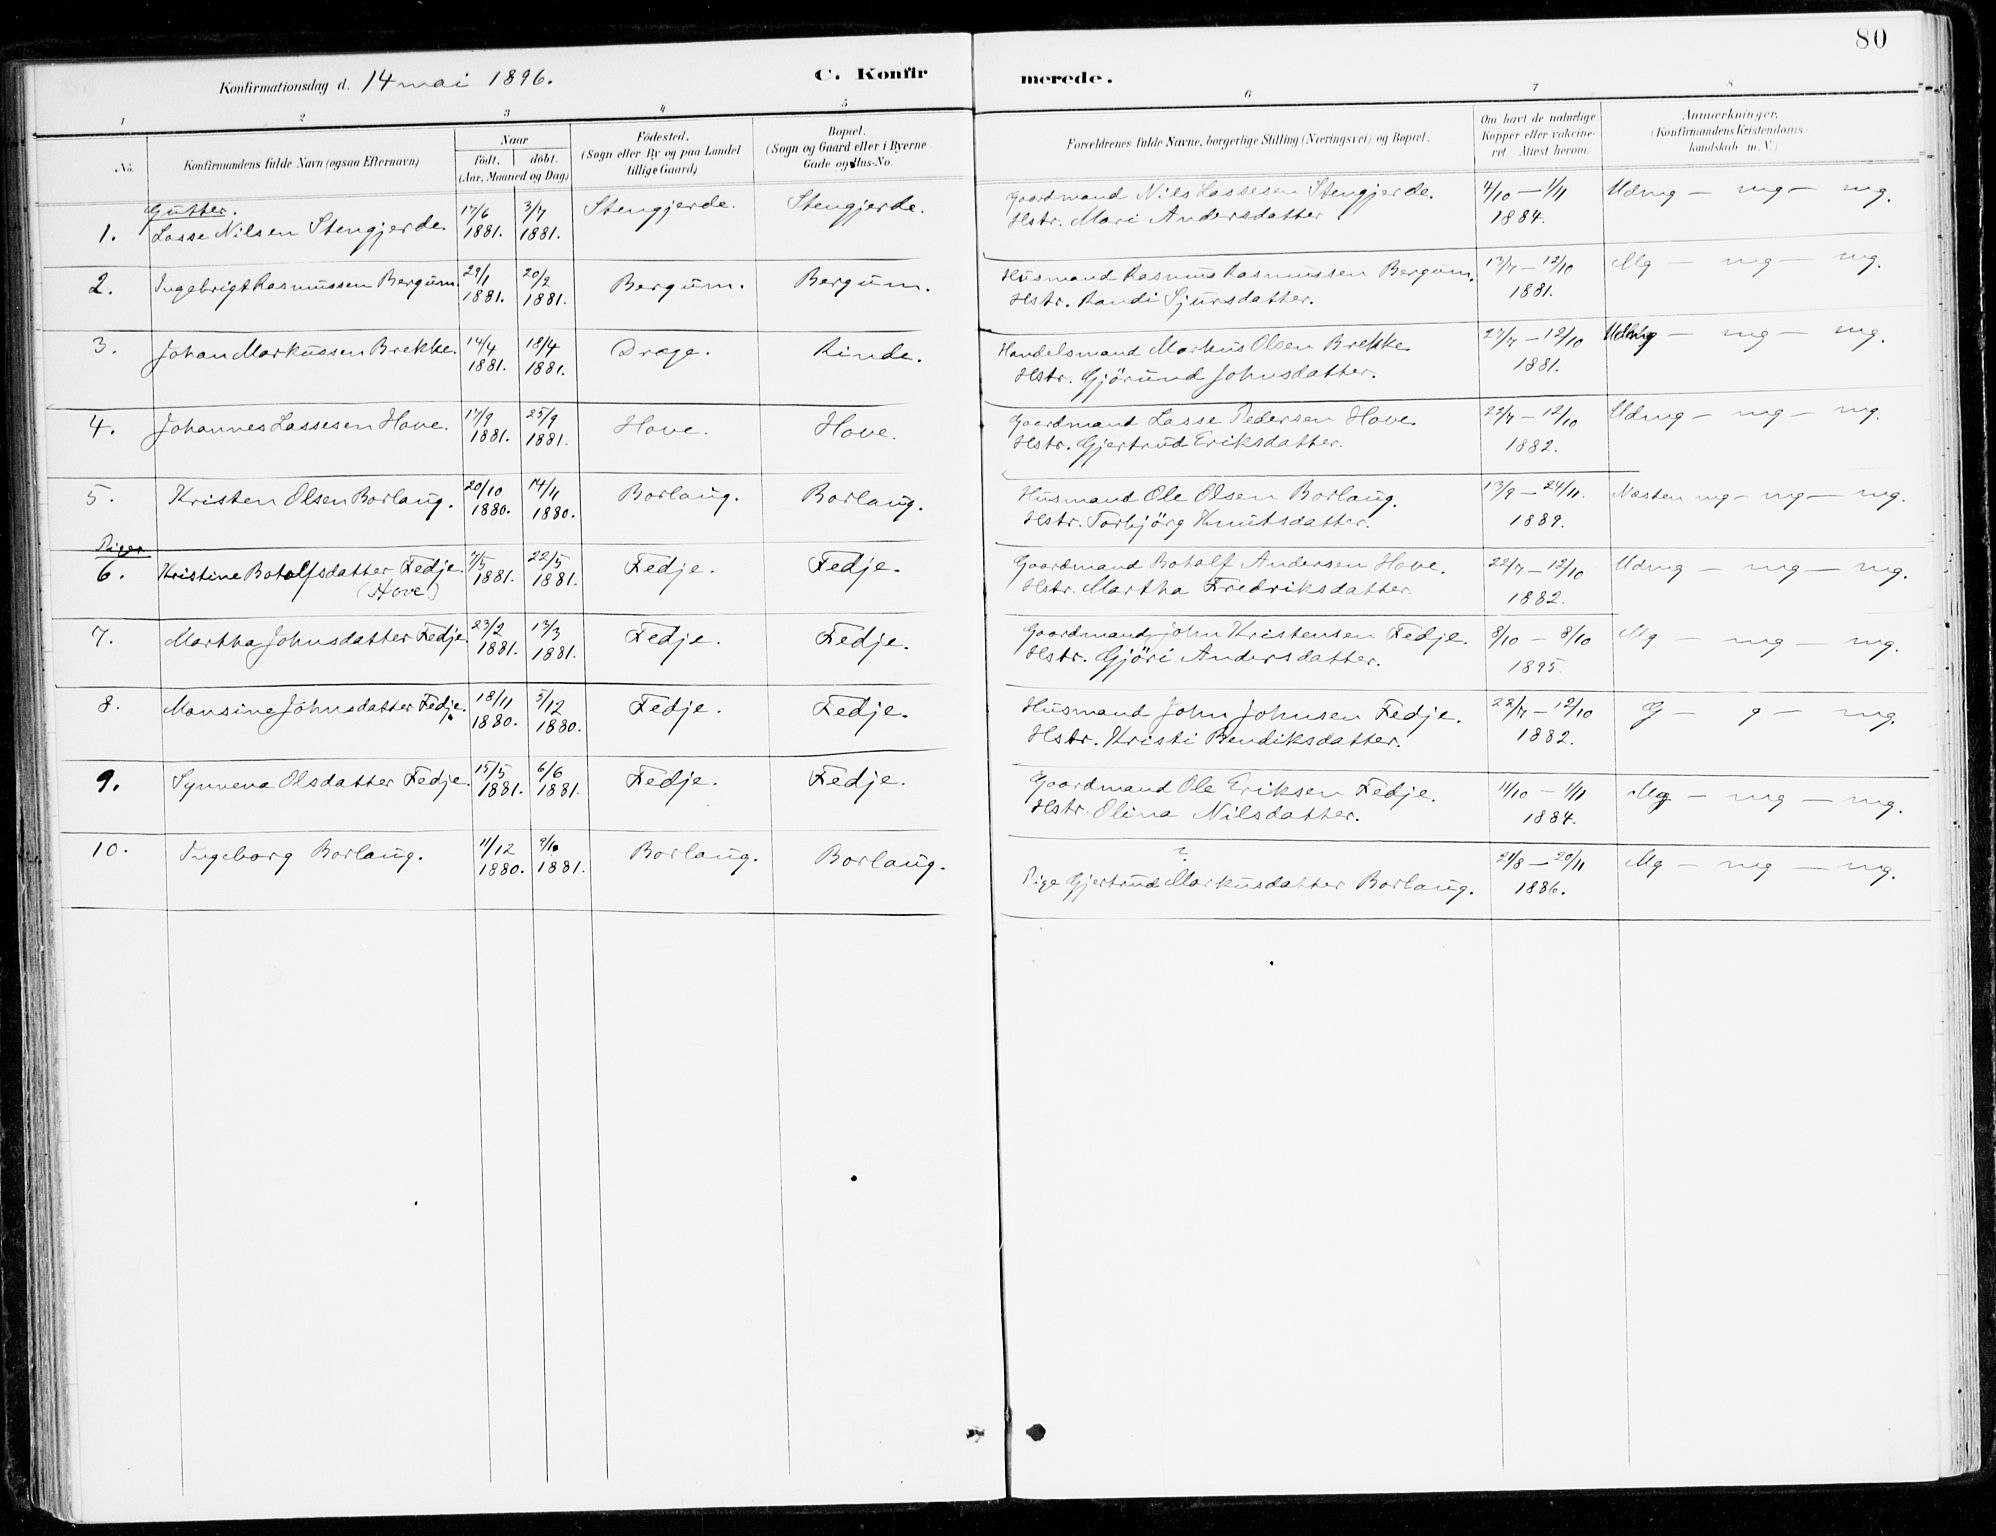 80
Konfirmationsdag d. 14 mai 1896. C. Konfirmerede.
1 2 3 4 5 6 7 8
No. Konfirmandens fulde Navn (ogsaa Efternavn) Naar født, døbt. (Aar, Maaned og Dag) Fødested. (Sogn eller By og paa Landet tillige Gaard) Bopæl. (Sogn og Gaard eller i Byerne Gade og Hus-No. Forældrenes fulde Navne, borgerlige Stilling (Næringsvei) og Bopæl. Om havt de naturlige Kopper eller vakcineret. Attest herom. Anmærkninger, (Konfirmandens Kristendomskundskab m. V.)
Gutter.
1. Lasse Nilsen Stengjerde. 17/6 1881. 3/7 1881. Stengjerde. Stengjerde. Gaardmand Nils Lassesen Stengjerde. Hstr. Mari Andersdatter 4/10 — 1/11 1884. Udmg — mg — mg.
2. Ingebrigt Rasmussen Bergum. 29/1 1881. 20/2 1881. Bergum. Bergum. Husmand Rasmus Rasmussen Bergum. Hstr. Randi Sjursdatter. 13/7 — 12/10 1881. Mg — mg — mg.
3. Johan Markussen Brekke. 14/4 1881. 18/4 1881. Drage. Rinde. Handelsmand Markus Olsen Brekke Hstr. Gjörund Johnsdatter. 27/7 — 12/10 1881. Udmg — mg — mg.
4. Johannes Lassesen Hove. 17/9 1881. 25/9 1881. Hove. Hove. Gaardmand Lasse Pedersen Hove. Hstr. Gjertrud Eriksdatter. 22/7 — 12/10 1882. Udmg — mg — mg.
5. Kristen Olsen Borlaug. 20/10 1880. 14/11 1880. Borlaug. Borlaug. Husmand Ole Olsen Borlaug. Hstr. Torbjörg Knutsdatter. 13/9 — 24/11. 1889. Næsten mg — mg — mg.
Piger
6. Kristine Botolfsdatter Fedje (Hove) 7/5 1881. 22/5 1881. Fedje. Fedje. Gaardmand Botolf Andersen Hove. Hstr. Martha Fredriksdatter. 22/7 — 12/10 1882. Udmg — mg — mg.
7. Martha Johnsdatter Fedje. 23/2 1881. 13/3 1881. Fedje. Fedje. Gaardmand John Kristensen Fedje. Hstr. Gjöri Andersdatter. 8/10 — 8/10 1895. Mg — mg — mg.
8. Monsine Johnsdatter Fedje. 18/11 1880. 5/12 1880. Fedje. Fedje. Husmand John Johnsen Fedje. Hstr. Kristi Bendiksdatter. 22/7 — 12/10 1882. G — g — mg.
9. Synneva Olsdatter Fedje. 15/5 1881. 6/6 1881. Fedje. Fedje. Gaardmand Ole Eriksen Fedje. Hstr. Olina Nilsdatter. 11/10 — 1/11 1884. Mg — mg — mg.
10. Ingeborg Borlaug. 11/12 1880. 9/10 1881. Borlaug. Borlaug. ? Pige Gjertrud Markusdatter Borlaug. 21/8 — 20/11 1886. Mg — mg — mg.